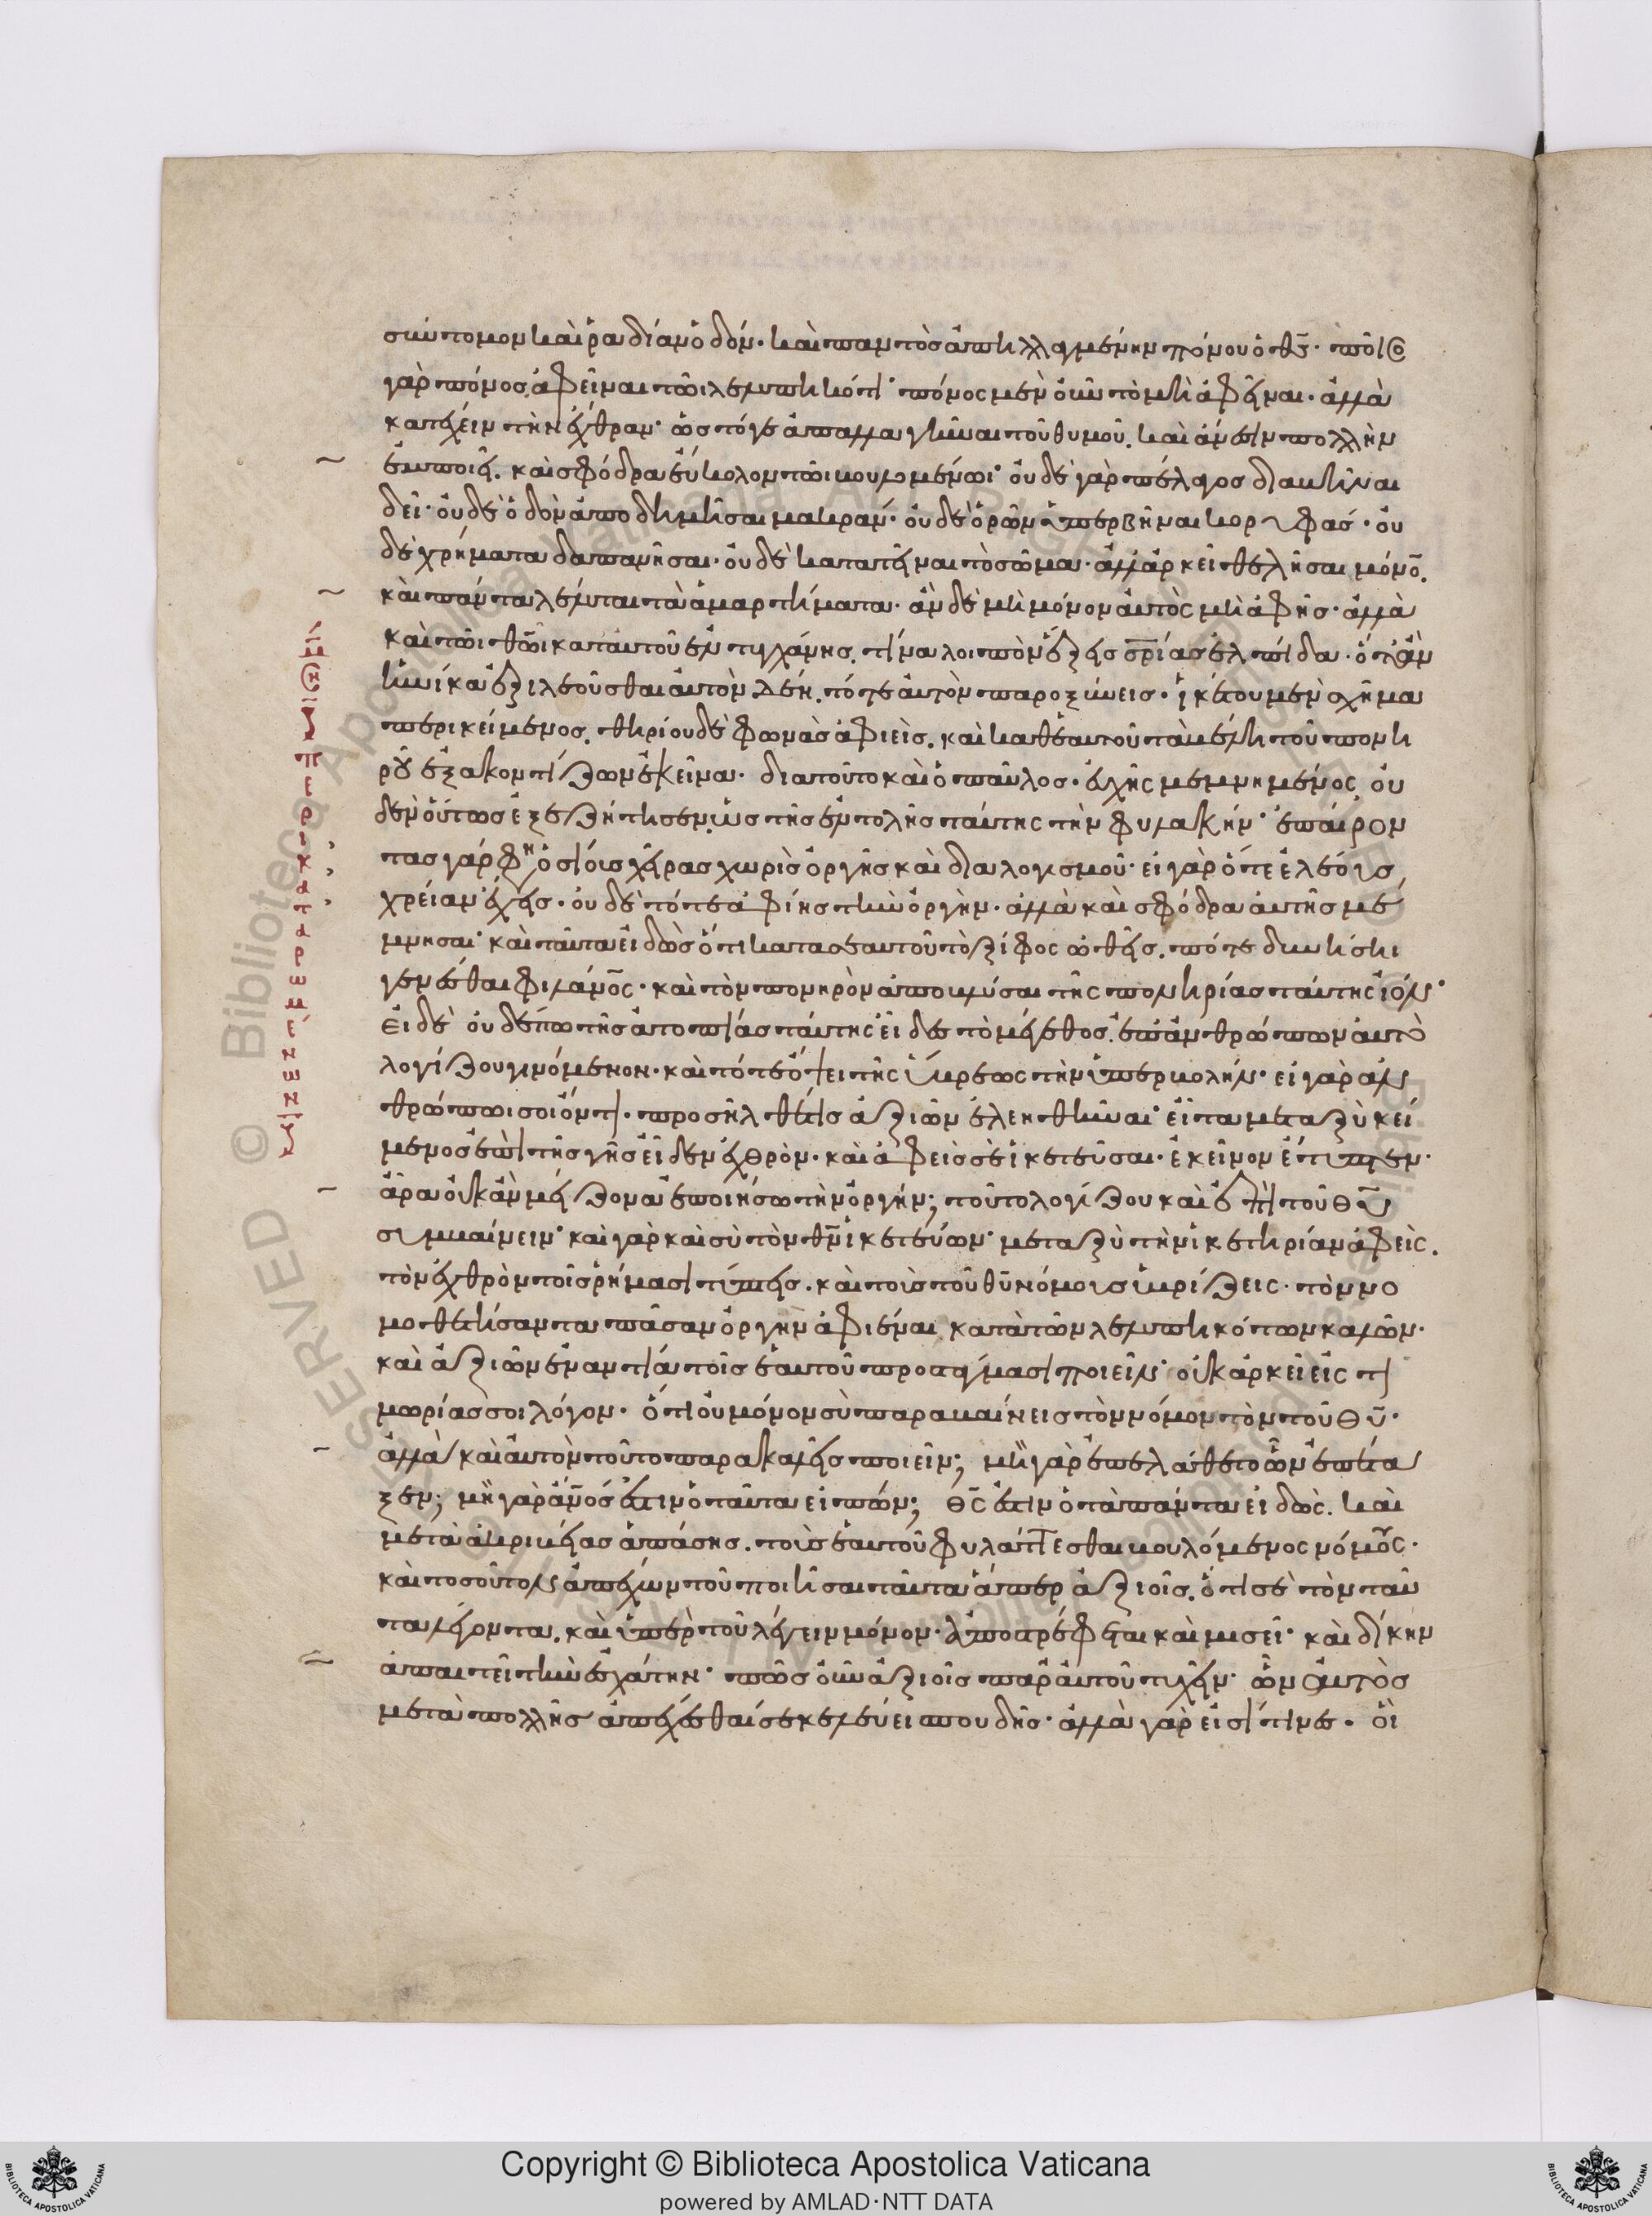 σύντομον καὶ ῥαδίαν ὁδόν· καὶ παντὸς ἀπηλλαγμένην πόνου ὁ θς· ποῖος
γὰρ πόνος, ἀφεῖναι τῶι λελυπηκότι· πόνος μὲν οὖν τὸ μὴ ἀφεῖναι· ἀλλὰ
κατέχειν τὴν ἔχθραν· ὡς τόγε ἀπαλλαγῆναι τοῦ θυμοῦ, καὶ ἄνεσιν πολλὴν
ἐμποιεῖ. καὶ σφόδρα εὔκολον τῶι βουλομένωι· οὐδὲ γὰρ πέλαγος διαβῆναι
δεῖ· οὐδὲ ὁδὸν ἀποδημῆσαι μακράν· οὐδὲ ὀρῶν ὑπερβῆναι κορυφάς· οὐ
δὲ χρήματα δαπανῆσαι· οὐδὲ κατατεῖναι τὸ σῶμα· ἀλλ' ἀρκεῖ θελῆσαι μόνο̅.
καὶ πάντα λέλυται τὰ ἁμαρτήματα· ἂν δὲ μὴ μόνον αὐτὸς μὴ ἀφῆς· ἀλλὰ
καὶ τῶι θῶι κατ' αὐτοῦ ἐντυγχάνης, τίνα λοιπὸν ἕξεις σρίας ἐλπίδα· ὅταν
ἡνίκα ἐξιλεοῦσθαι αὐτὸν δέη, τότε αὐτὸν παροξύνεις· ἱκέτου μὲν σχῆμα
περικείμενος, θηρίου δὲ φωνὰς ἀφιεὶς, καὶ καθ' ἑαυτοῦ τὰ βέλη τοῦ πονη
ροῦ ἐξακοντίζων ἐκεῖνα· διατοῦτο καὶ ὁ παῦλος· εὐχῆς μεμνημένος, οὐ
δὲν οὕτως ἐξεζήτησεν, ὡς τῆς ἐντολῆς ταύτης τὴν φυλακήν· ἐπαίρον
τας γάρ φη ὁσίους χεῖρας χωρὶς ὀργῆς καὶ διαλογισμοῦ· εἰ γὰρ ὅτε ἐλέους
χρείαν ἔχεις· οὐδὲ τότε ἀφίης τὴν ὀργὴν· ἀλλὰ καὶ σφόδρα αὐτῆς μέ
μνησαι· καὶ ταῦτα εἰδὼς ὅτι κατὰ σεαυτοῦ τὸ ξίφος ὠθεῖς, πότε δυνήσηι
γενέσθαι φιλάνο̅ς· καὶ τὸν πονηρὸν ἀποπτύσαι τῆς πονηρίας ταύτης ἰόν·
εἰ δὲ οὐδέπω τῆς ἀτοπίας ταύτης εἶδες τὸ μέγεθος, ἐπ' ἀνθρώπων αὐτὸ
λογίζου γινόμενον· καὶ τότε ὄψει τῆς ὕβρεως τὴν ὑπερβολήν· εἰ γὰρ ἀν
θρώπωι σοι ὄντι· προσῆλθέ τις ἀξιῶν ἐλεηθῆναι· εἶτα μεταξὺ κεί
μενος ἐπὶ τῆς γῆς εἶδεν ἐχθρὸν· καὶ ἀφεὶς σὲ ἱκετεῦσαι· ἐκεῖνον ἔτυπτεν·
ἆρα οὐκ ἂν μείζονα ἐποιήσω τὴν ὀργήν; τοῦτο λογίζου καὶ ἐπὶ τοῦ θυ
συμβαίνειν· καὶ γὰρ καὶ σὺ τὸν θν ἱκετεύων· μεταξὺ τὴν ἱκετηρίαν ἀφεὶς.
τὸν ἐχθρὸν τοῖς ῥήμασι τύπτεις. καὶ τοὺς τοῦ θυ νόμους ὑβρίζεις· τὸν νο
μοθετήσαντα πᾶσαν ὀργὴν ἀφιέναι κατὰ τῶν λελυπηκότων καλῶν·
καὶ ἀξιῶν ἐναντία τοῖς ἑαυτοῦ προστάγμασι ποιεῖν· οὐκ ἀρκεῖ εἰς τι
μωρίας σοι λόγον· ὅτι οὐ μόνον σὺ παραβαίνεις τὸν νόμον τὸν τοῦ θυ·
ἀλλὰ καὶ αὐτὸν τοῦτο παρακαλεῖς ποιεῖν; μὴ γὰρ ἐπελάθετο ὧν ἐπέτα
ξεν; μὴ γὰρ ἄνος ἐστιν ὁ ταῦτα εἰπών; θς ἐστιν ὁ τὰ πάντα εἰδὼς. καὶ
μετὰ ἀκριβείας ἁπάσης. τοὺς ἑαυτοῦ φυλάττεσθαι βουλόμενος νόμους·
καὶ τοσοῦτον ἀπέχων τοῦ ποιῆσαι ταῦτα ἅπερ ἀξιοῖς, ὅτι σὲ τὸν ταῦ
τα λέγοντα, καὶ ὑπὲρ τοῦ λέγειν μόνον· ἀποστρέφεται καὶ μισεῖ· καὶ δίκην
ἀπαιτεῖ τὴν ἐσχάτην· πῶς οὖν ἀξιοῖς παρ' αὐτοῦ τυχεῖν· ὧν αὐτὸς
μετὰ πολλῆς ἀπέχεσθαί σε κελεύει σπουδῆς· ἀλλὰ γὰρ εἰσί τινες· οἳ
Copyright © Biblioteca Apostolica Vaticana
powered by AMLAD·NTT DATA